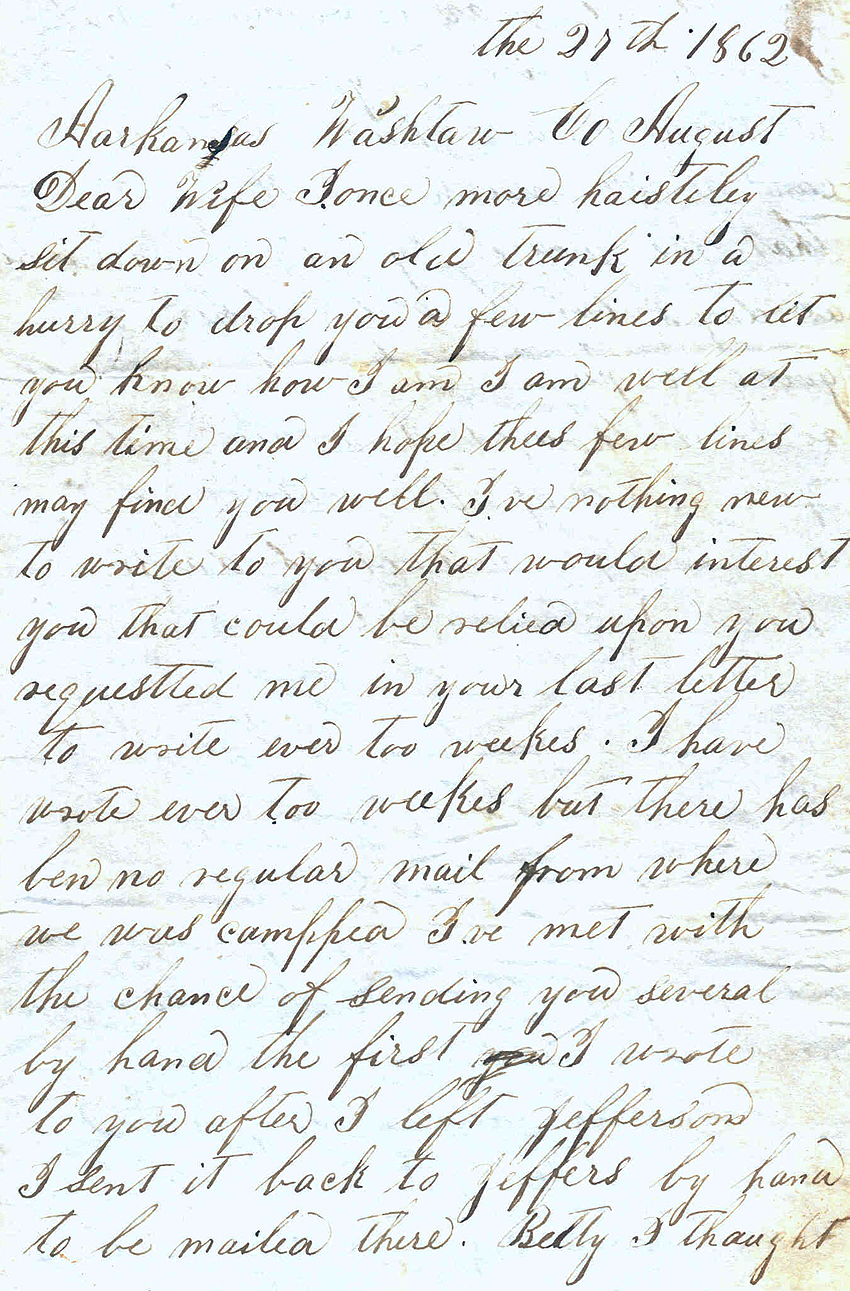 the 27th 1862
Harkansas Washtaw Co August
Dear Wife I once more haisteley
sit down on an old trunk in a
hurry to drop you a few lines to let
you know how I am I am well at
this time and I hope thees few lines
may find you well. I've nothing new
to write to you that would interest
you that could be relied upon you
requestted me in your last letter
to write ever too weekes. I have
wrote ever too weekes but there has
ben no regular mail from where
we was campped I've met with
the chance of sending you several
by hand the first I wrote
to you after I left Jefferson
I sent it back to Jeffers by hand
to be mailed there. Betty I thaught